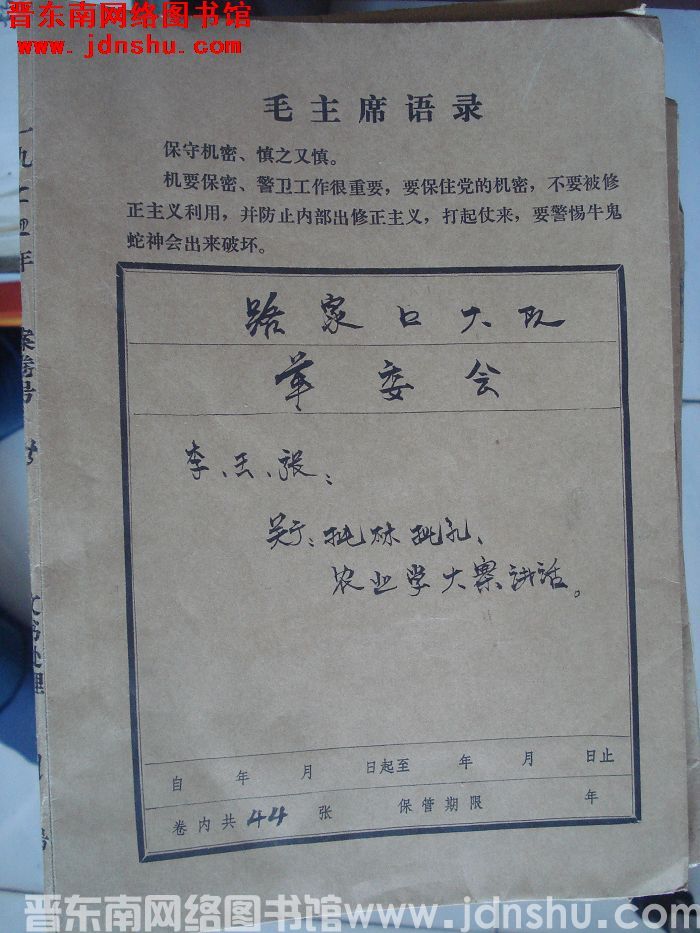 晋东南网络图书馆
www.jdnshu.com
毛主席语录
保守机密、慎之又慎。
机要保密、警卫工作很重要，要保住党的机密，不要被修
正主义利用，并防止内部出修正主义，打起仗来，要警惕牛鬼
蛇神会出来破坏。
路家口大队
革委会
李、王、毅：
关于：批林批孔、
农业学大寨讲话。
自 年 月 日起至 年 月 日止
卷内共 44 张 保管期限 年
一九七四年 案卷号
文书处理 号
晋东南网络图书馆 www.jdnshu.com